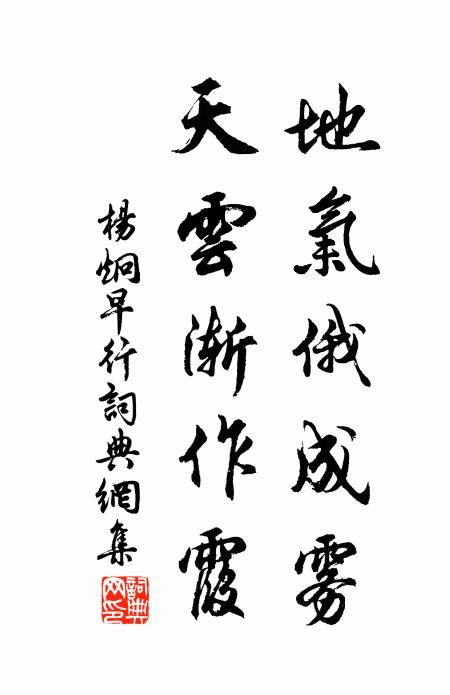 地氣俄成雾
天雲漸作霞
楊炯早行詞典網集
詞典網印